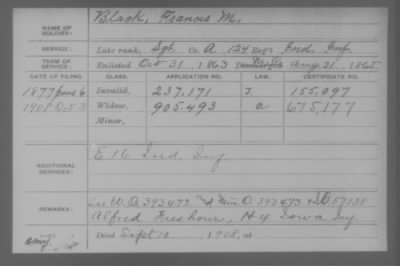 NAME OF SOLDIER: Black, Francis M.
SERVICE: Late rank, Sgt. Co. A, 124 Reg't Ind. Inf.
TERM OF SERVICE: Enlisted Oct 31, 1863 Discharged Aug 31, 1865
DATE OF FILING. CLASS. APPLICATION NO. LAW. CERTIFICATE NO.
1877 June 6 Invalid, 237.171 J. 155,097
1908 Oct 3 Widow, 905.493 a 675,177
Minor,
ADDITIONAL SERVICES: E 16 Ind Inf
REMARKS: See W.O. 393472 and Min. O. 393473 57138
Alfred Freshour, H 4 Iowa
Died Sept 12, 1908, at